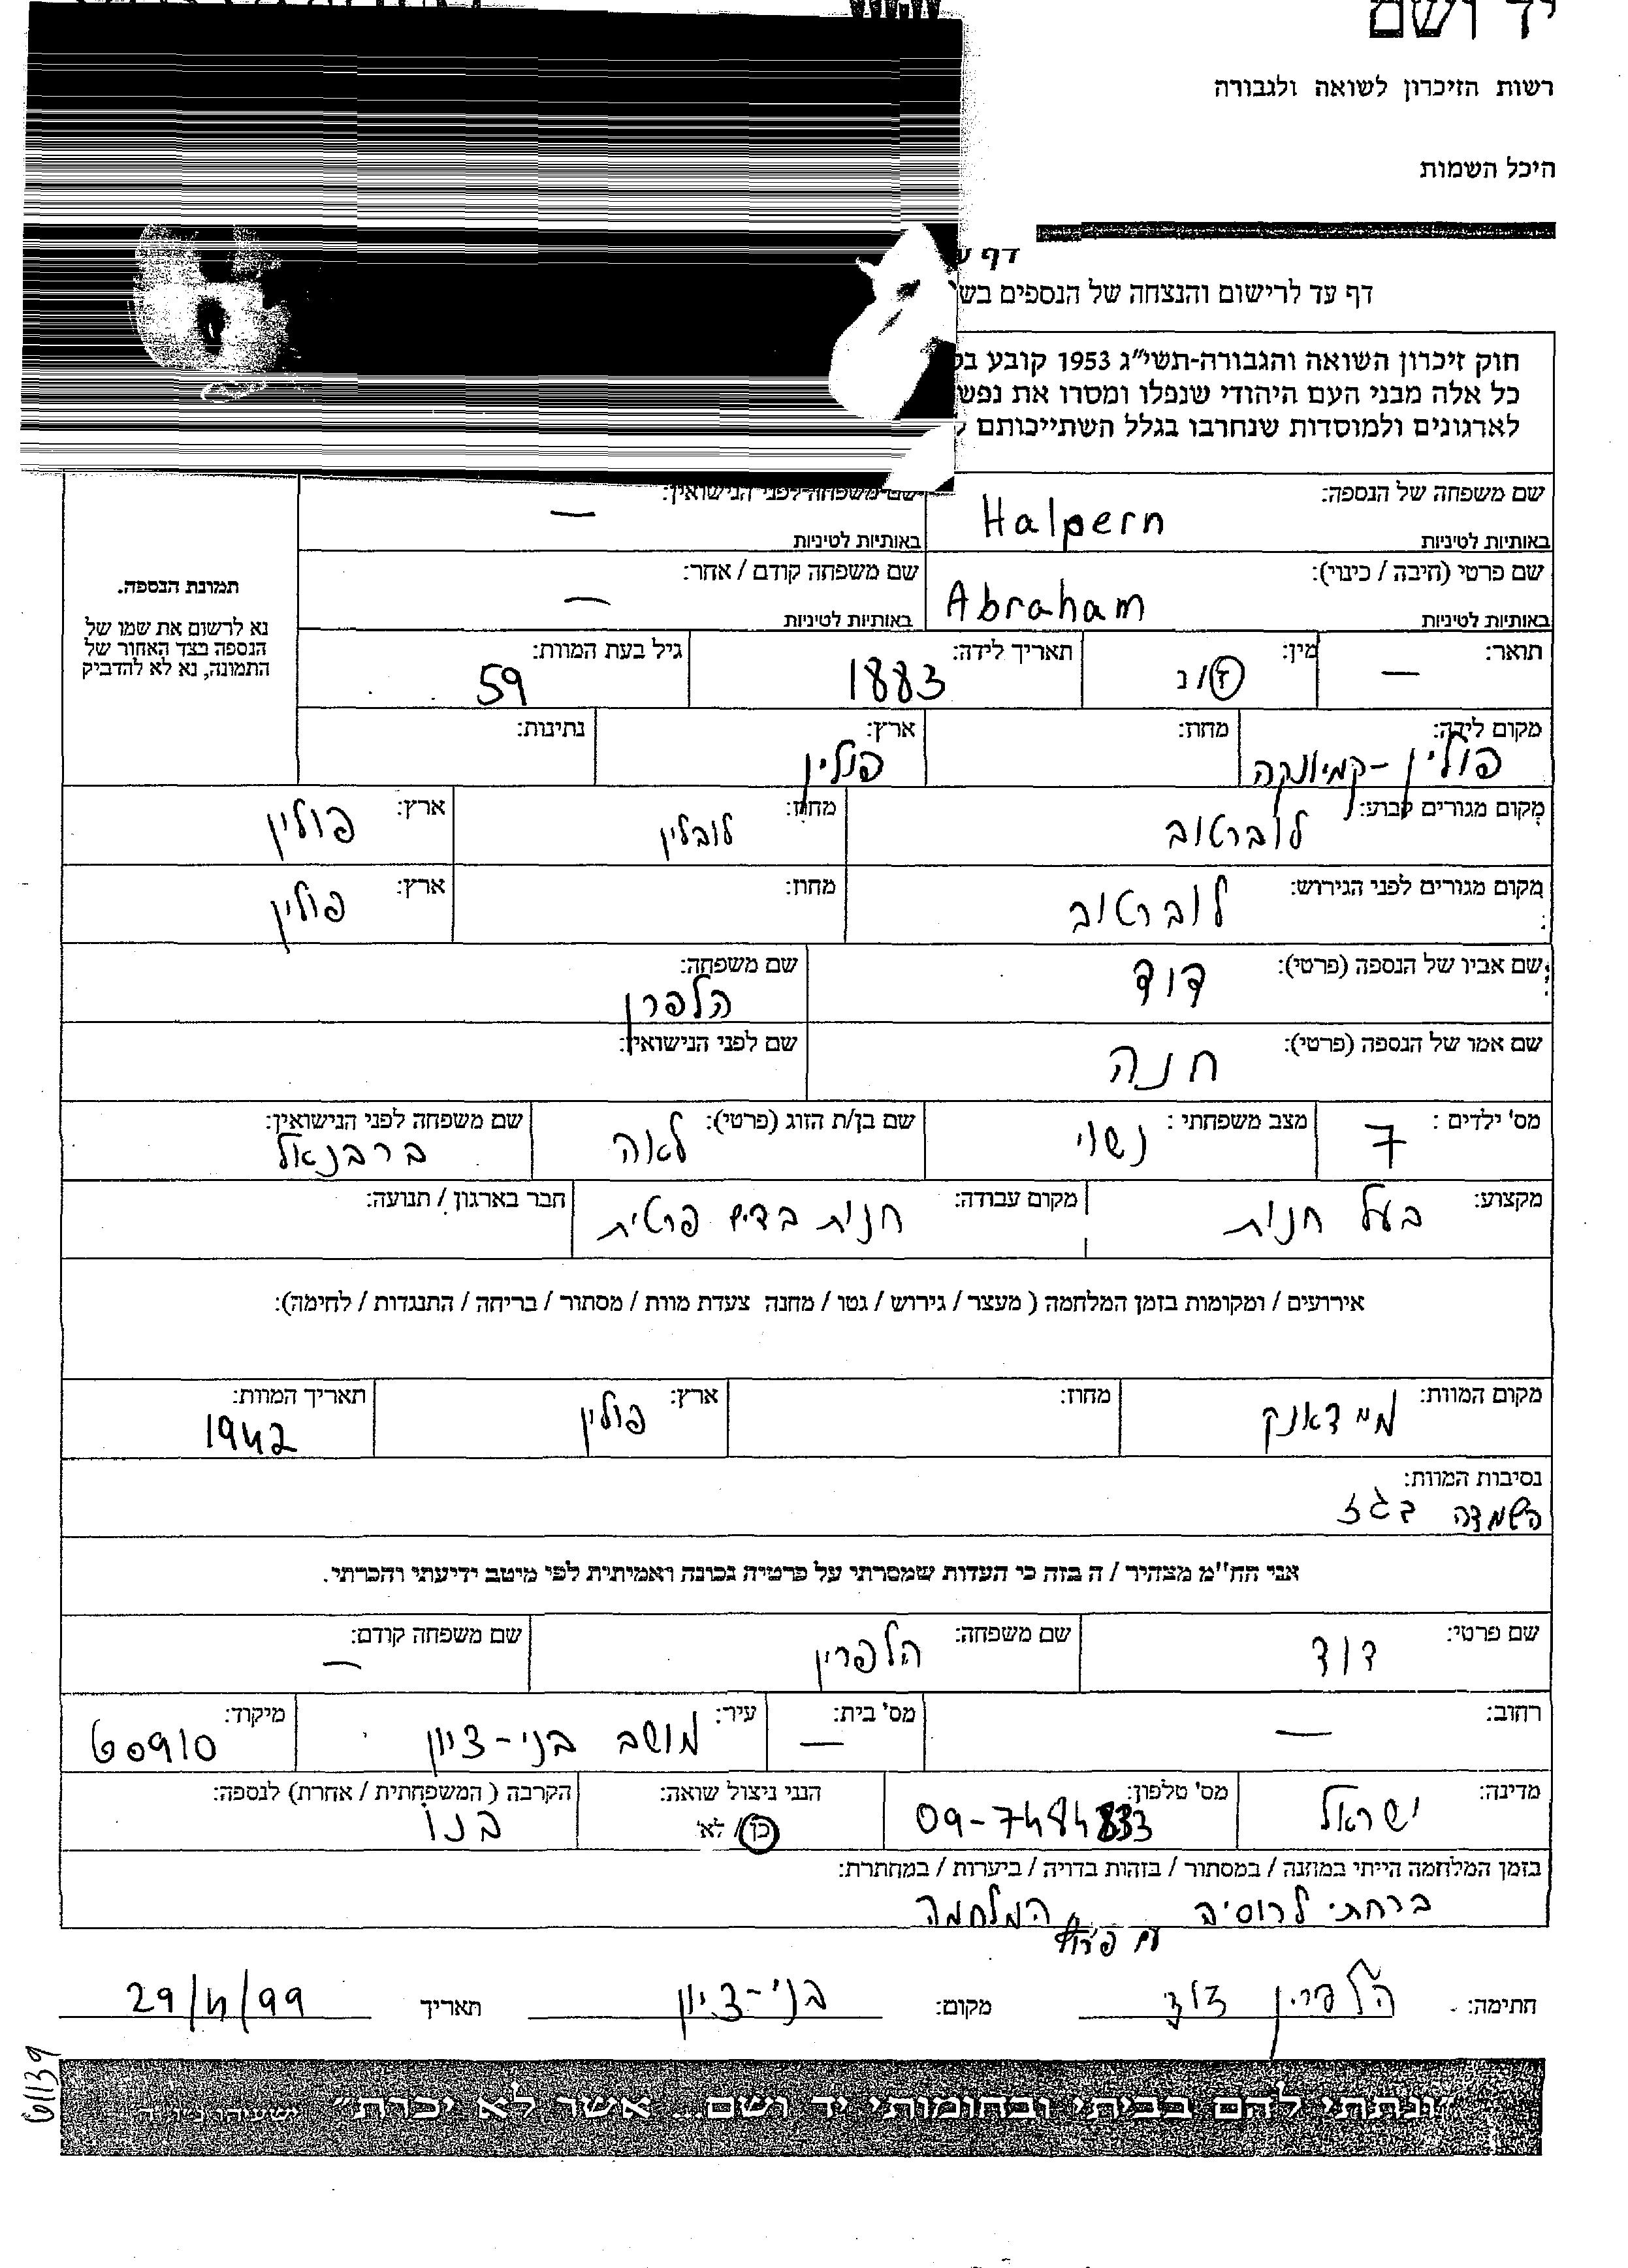 יד ושם
רשות הזיכרון לשואה ולגבורה
היכל השמות
דף
דף עד לרישום והנצחה של הנספים
חוק זיכרון השואה והגבורה-תשי״ג 1953 קובע
כל אלה מבני העם היהודי שנפלו ומסרו את נפש
לארגונים ולמוסדות שנחרבו בגלל השתייכותם
שם משפחה של הנספה: Halpern באותיות לטיניות
שם משפחה לפני הנישואין: — באותיות לטיניות
שם פרטי (חיבה / כינוי): Abraham באותיות לטיניות
שם משפחה קודם / אחר: — באותיות לטיניות
תמונת הנספה.
נא לרשום את שמו של
הנספה בצד האחור של
התמונה, נא לא להדביק
תואר: — מין: ז/נ תאריך לידה: 1883 גיל בעת המוות: 59
מקום לידה: פולין - קמיונקה מחוז: ארץ: פולין נתינות:
מקום מגורים קבוע: לוברטוב מחוז: לובלין ארץ: פולין
מקום מגורים לפני הגירוש: לוברטוב מחוז: ארץ: פולין
שם אביו של הנספה (פרטי): דוד שם משפחה: הלפרן
שם אמו של הנספה (פרטי): חנה שם לפני הנישואין:
מס' ילדים: 7 מצב משפחתי: נשוי שם בן/ת הזוג (פרטי): לאה שם משפחה לפני הנישואין: ברבנאל
מקצוע: בעל חנות מקום עבודה: חנות בדים פרטית חבר בארגון / תנועה:
אירועים / ומקומות בזמן המלחמה ( מעצר / גירוש / גטו / מחנה צעדת מוות / מסתור / בריחה / התנגדות / לחימה):
מקום המוות: מיידאנק מחוז: ארץ: פולין תאריך המוות: 1942
נסיבות המוות:
השמדה בגז
אני הח"מ מצהיר / ה בזה כי העדות שמסרתי על פרטיה נכונה ואמיתית לפי מיטב ידיעתי והכרתי.
שם פרטי: דוד שם משפחה: הלפרין שם משפחה קודם: —
רחוב: — מס' בית: — עיר: מושב בני-ציון מיקוד: 60910
מדינה: ישראל מס' טלפון: 09-7484833 הנני ניצול שואה: כן / לא הקרבה ( המשפחתית / אחרת) לנספה: בנו
בזמן המלחמה הייתי במחנה / במסתור / בזהות בדויה / ביערות / במחתרת:
ברחתי לרוסיה עם פרוץ המלחמה
חתימה: הלפרין דוד מקום: בני-ציון תאריך 29/4/99
"ונתתי להם בביתי ובחומותי יד ושם... אשר לא יכרת" ישעיהו